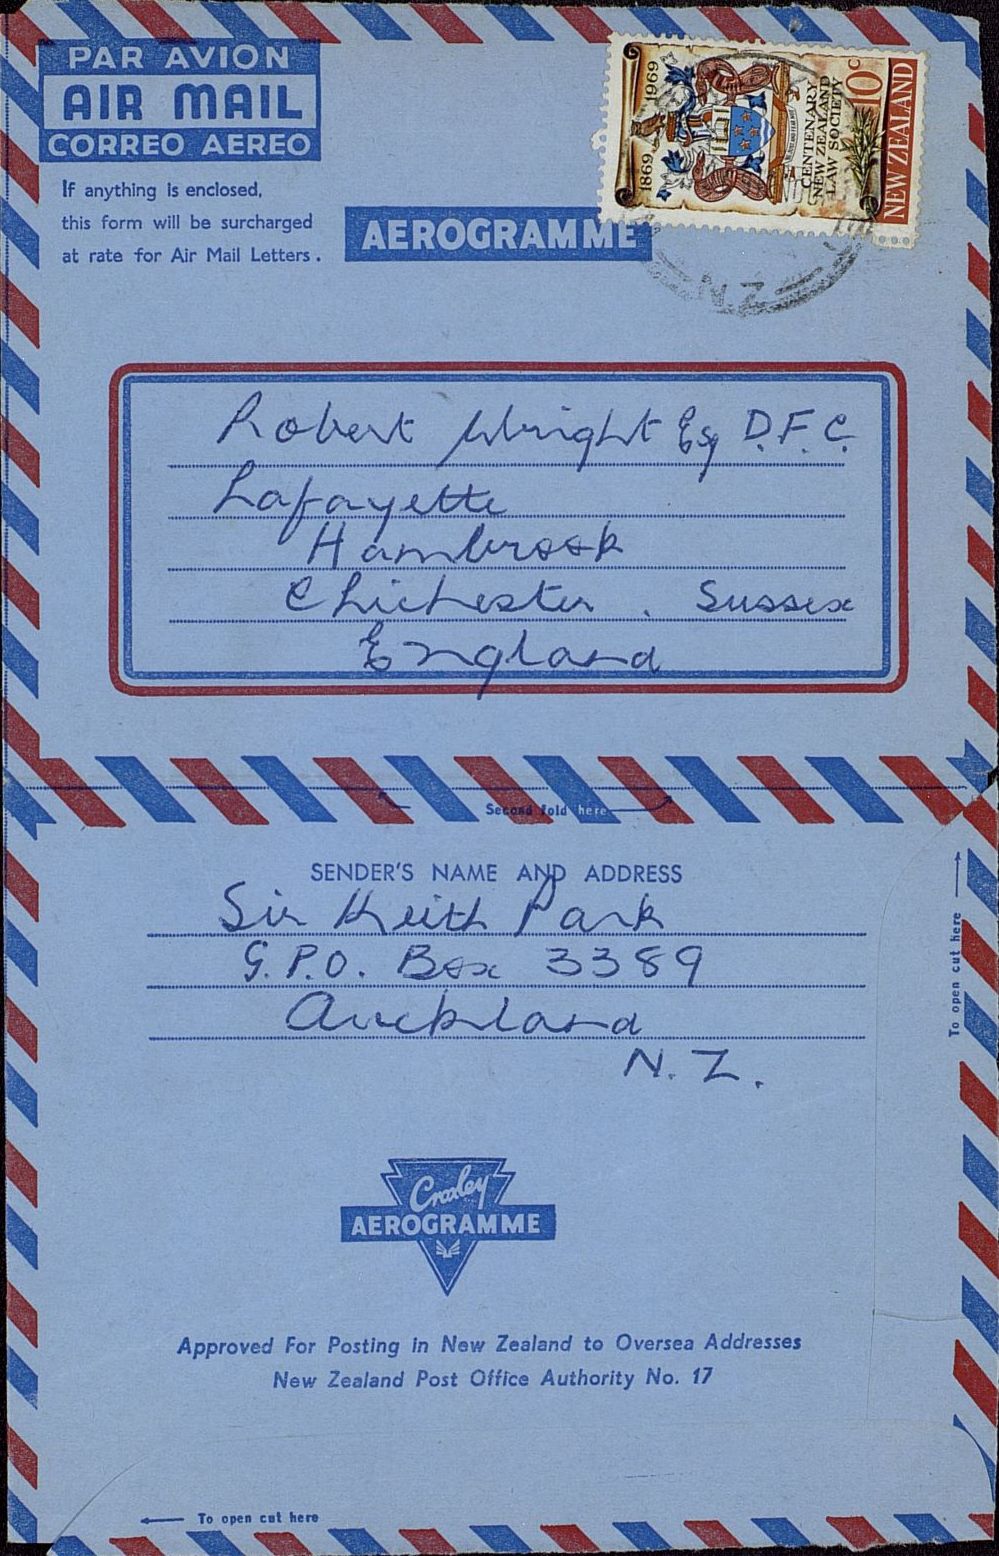 PAR AVION
AIR MAIL
CORREO AEREO
If anything is enclosed,
this form will be surcharged
at rate for Air Mail Letters.
AEROGRAMME
1869 1969
CENTENARY
NEW ZEALAND
LAW SOCIETY
10c
NEW ZEALAND
N.Z
Robert Wright Esq D.F.C.
Lafayette
Hambrook
Chichester. Sussex
England
Second fold here
SENDER'S NAME AND ADDRESS
Sir Keith Park
G.P.O. Box 3389
Auckland
N.Z.
To open cut here
Croxley
AEROGRAMME
Approved For Posting in New Zealand to Oversea Addresses
New Zealand Post Office Authority No. 17
To open cut here